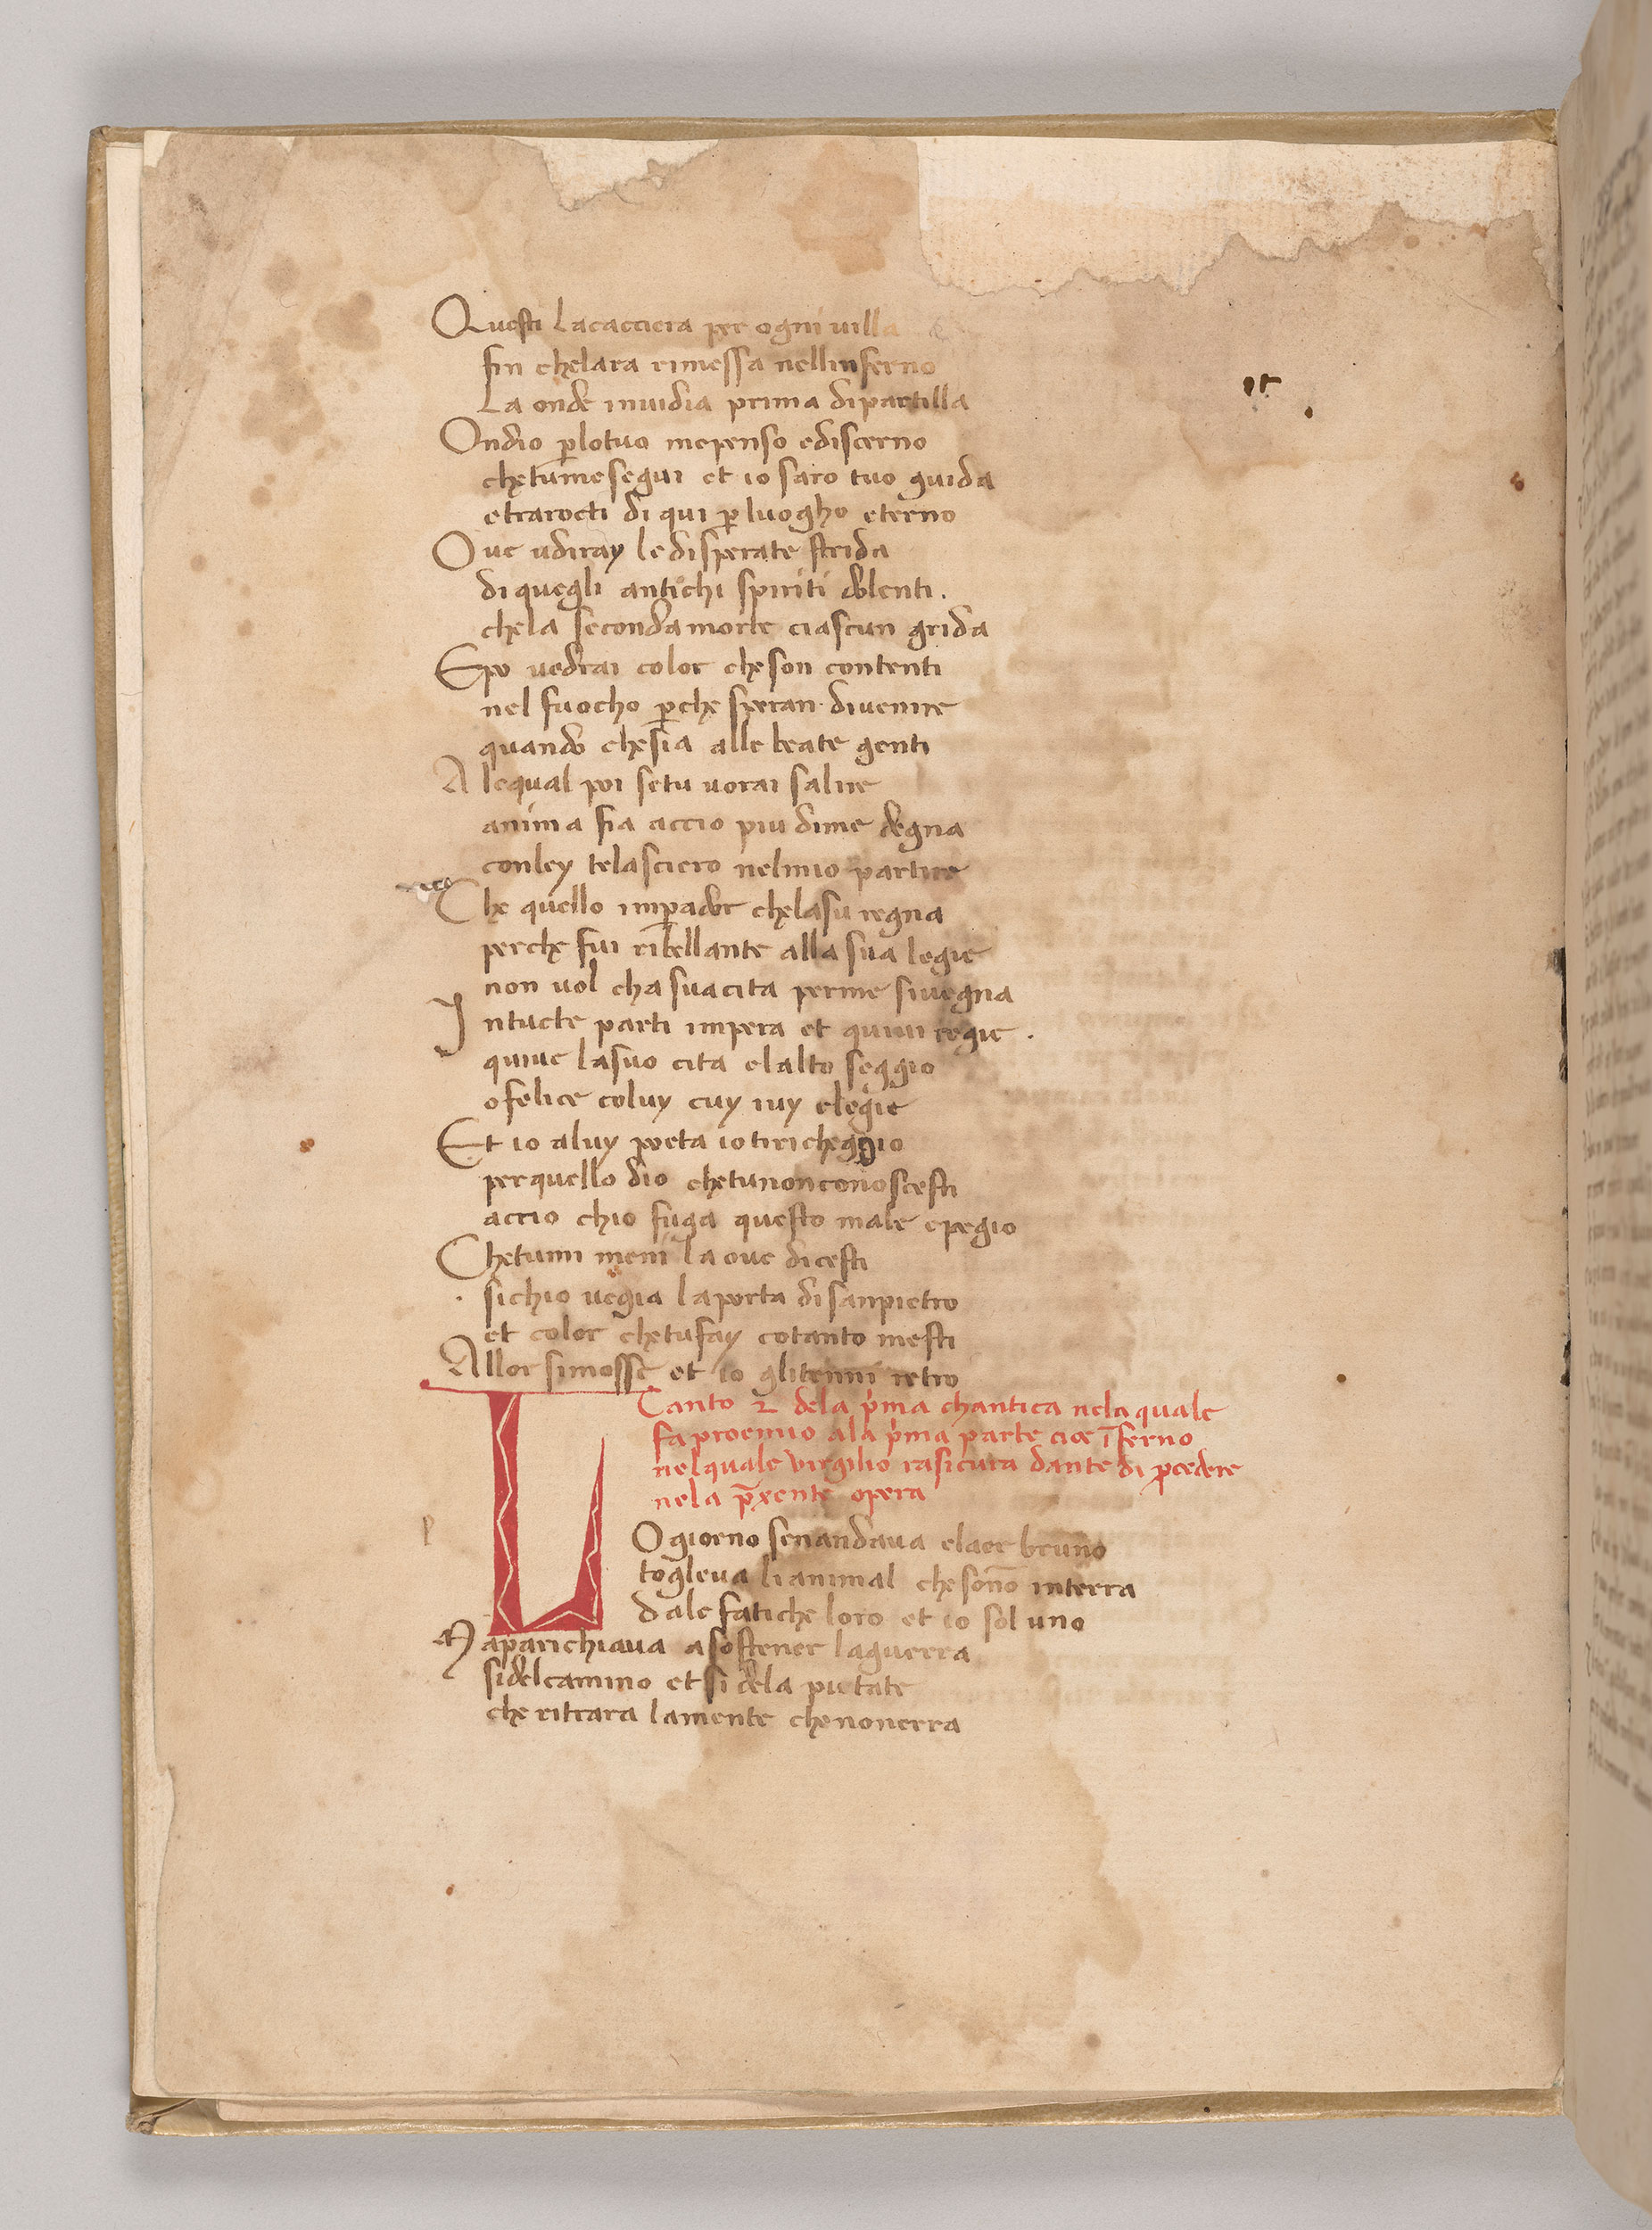 Questi lacacciera per ogni villa
fin chelara rimessa nellinferno
La onde invidia prima dipartilla
Ondio plotuo mepenso ediscerno
chetumesegui et io saro tuo guida
etrarocti di qui p luogho eterno
Ove udiray ledisperate strida
di quegli antichi spiriti dolenti.
chela secondamorte ciascun grida
Epo vedrai color cheson contenti
nel fuocho pche speran divenire
quando chesia alle beate genti
A lequal poi setu vorai salire
anima fia accio piu dime degna
conley telasciero nelmio partire
Che quello impador chelasu regna
perche fui ribellante alla sua legie
non vol cha suacita perme sivegna
Intucte parti impera et quivi regie.
quive lasuo cita elalto seggio
ofelice coluy cuy iuy elegie
Et io aluy poeta iotiricheggio
perquello dio chetunonconoscesti
accio chio fuga questo male epegio
Chetumi meni la ove dicesti
sichio vegia laporta disanpietro
et color chetufay cotanto mesti
Allor simosse et io glitenni retro
Canto 2 dela pima chantica nela quale
fa proemio ala pima parte cioe iferno
nelquale virgilio rasicura dante di pcedere
nela pxente opera
LO giorno senandava elaer bruno
togleva lianimal chesono interra
dale fatiche loro et io sol uno
Maparichiava asostener laguerra
sidelcamino et si dela pietate
che ritrara lamente chenonerra